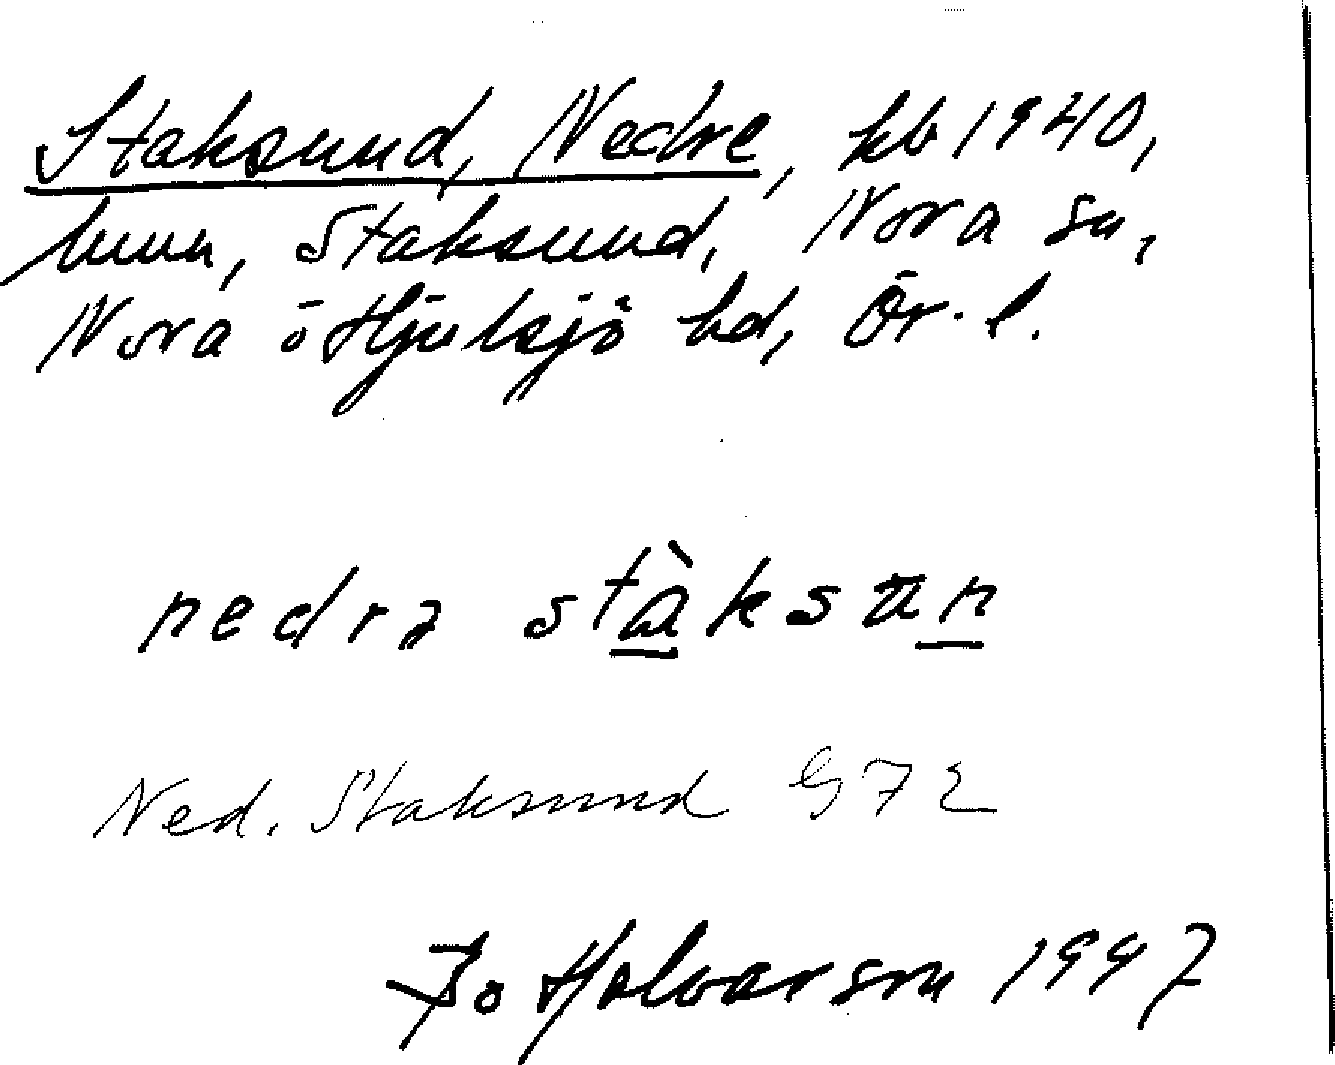 Staksund, Nedre, kb 1940,
hmn, Staksund, Nora sn,
Nora o Hjulsjö bd, Ör. l.
nedrə stàksun
Ned. Staksund G72
Jo Halvarson 1997